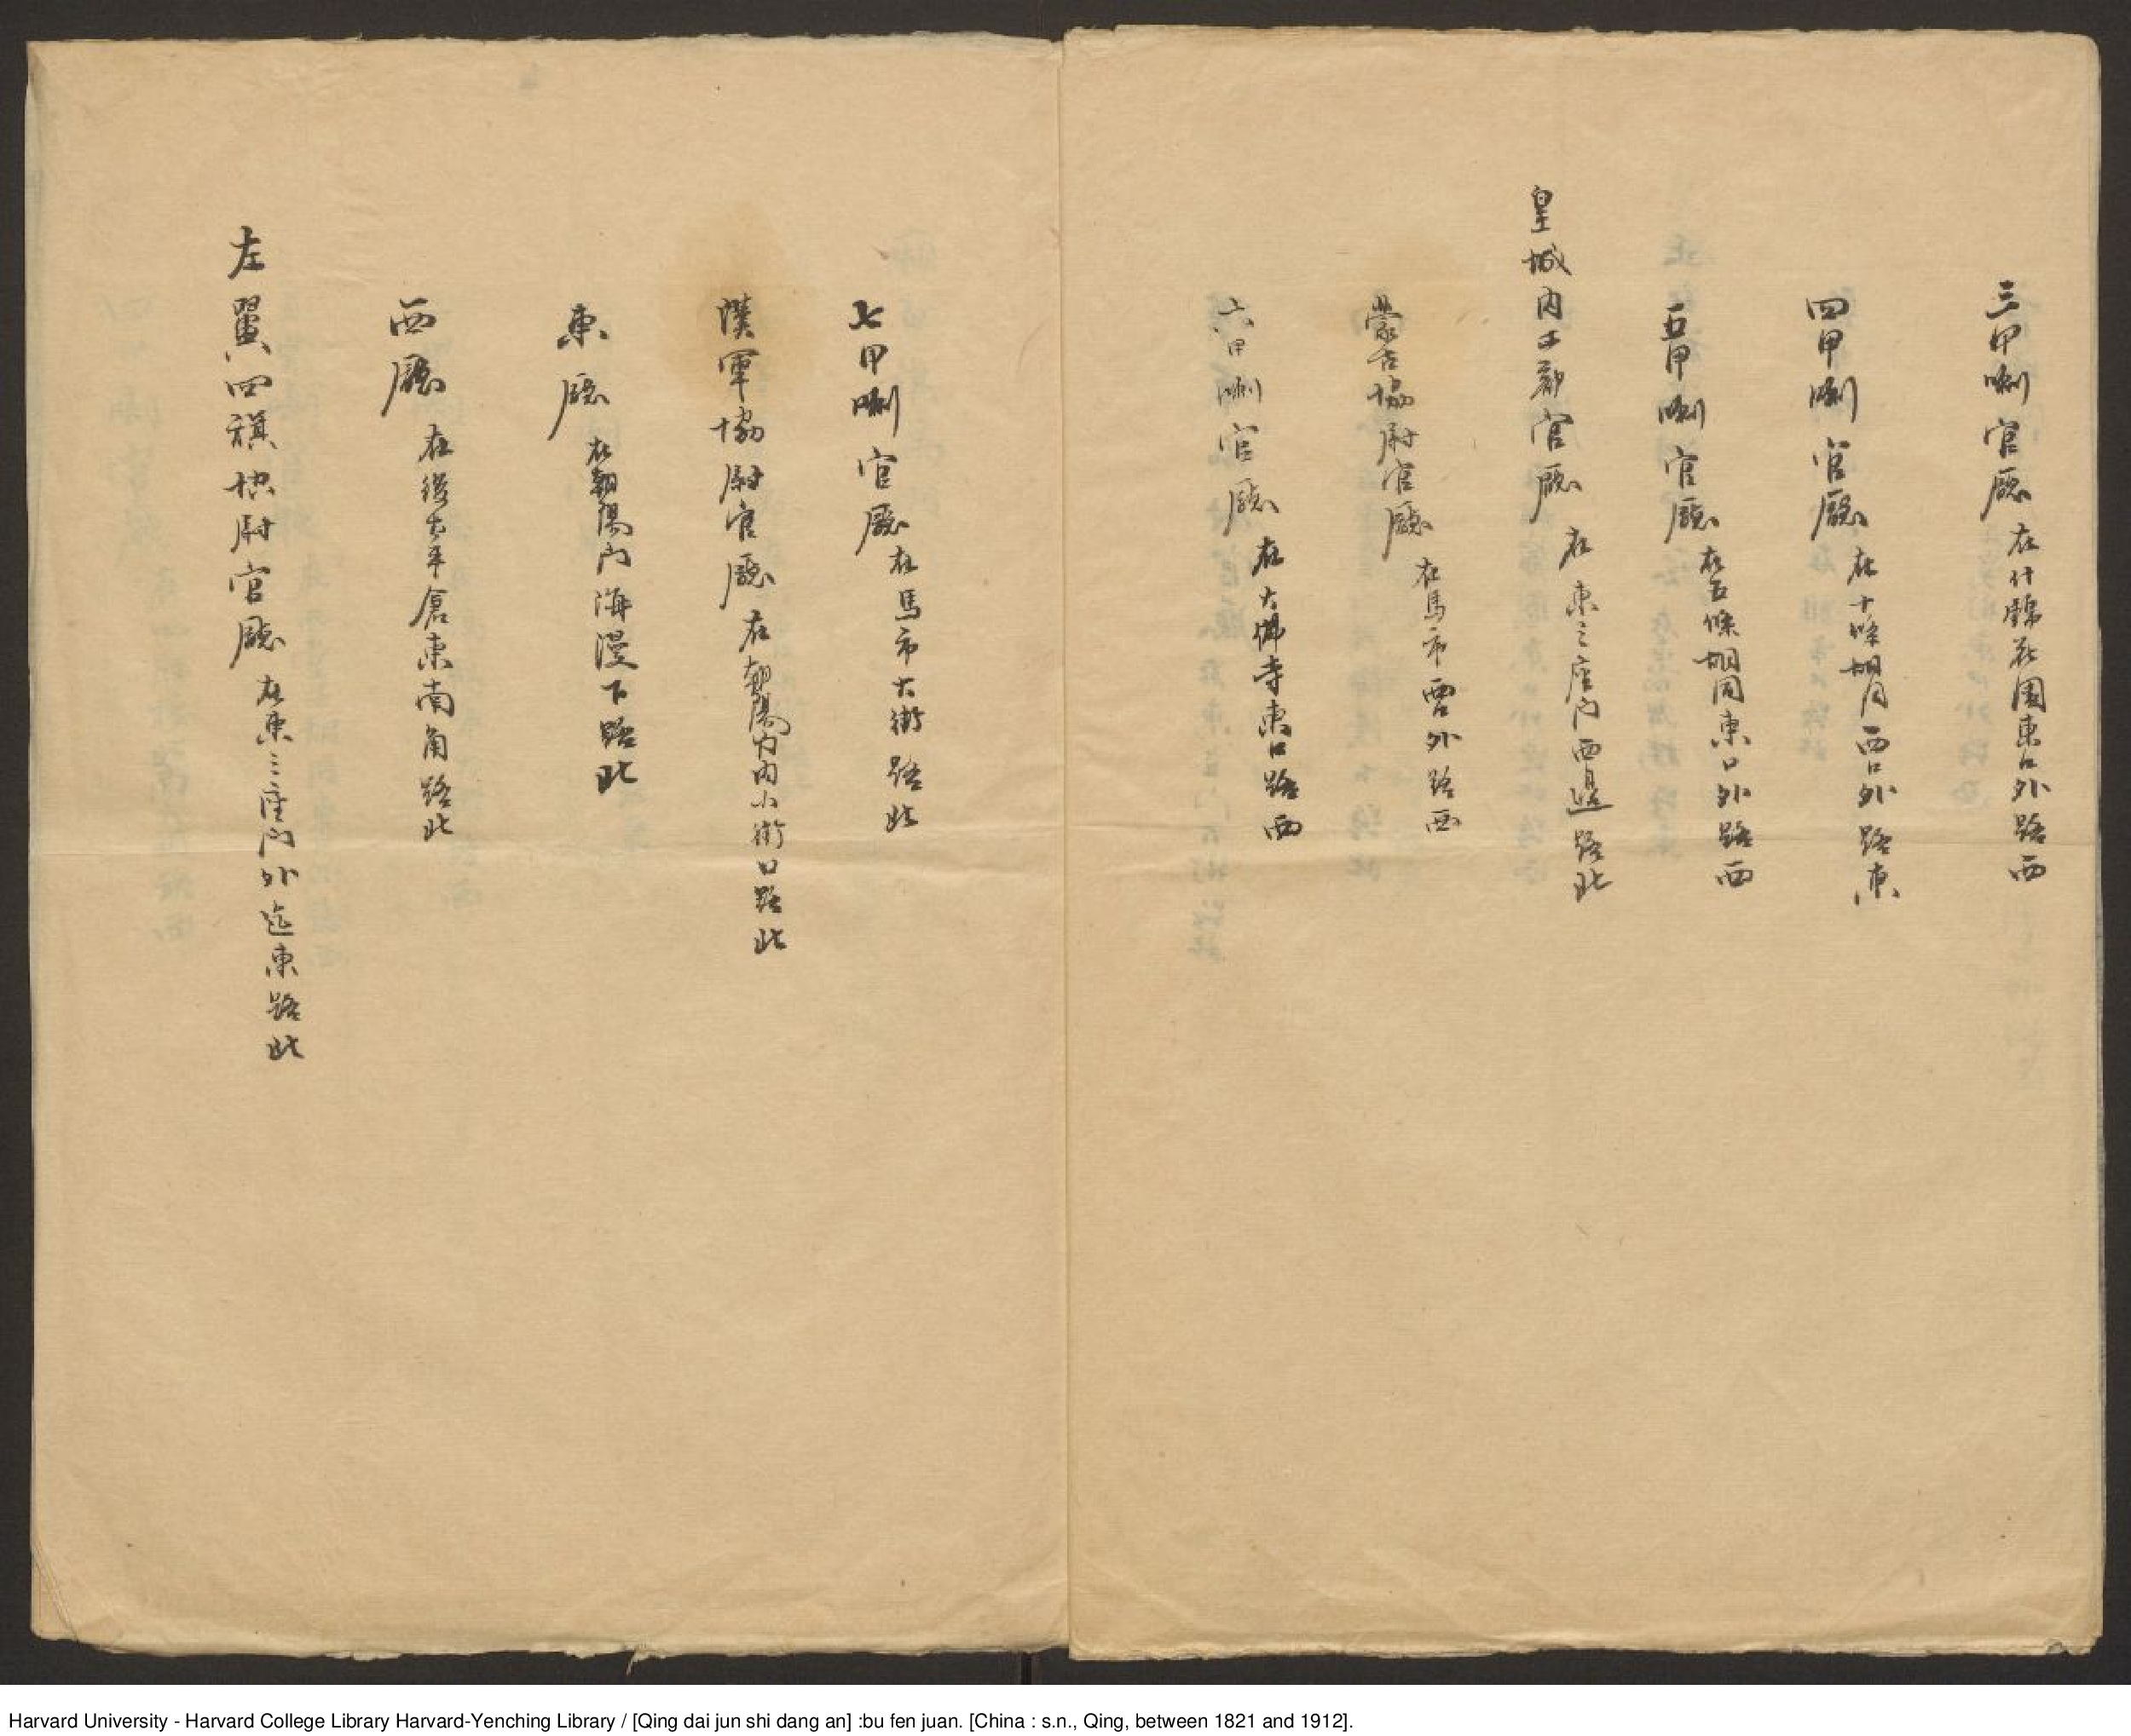 三甲喇官廳在什錦花園東口外路西
四甲喇官廳在十條胡同西口外路東
五甲喇官廳在五條胡同東口外路西
皇城內正部官廳在東三座門西邊路北
蒙古協尉官廳在馬市西口外路西
六甲喇官廳在大佛寺東口路西
七甲喇官廳在馬市大街路北
漢軍協尉官廳在朝陽門內小街口路北
東廳在朝陽門海漫下路北
西廳在後太平倉東南角路北
左翼四旗協尉官廳在東三座門外迤東路北
Harvard University - Harvard College Library Harvard-Yenching Library / [Qing dai jun shi dang an] :bu fen juan. [China : s.n., Qing, between 1821 and 1912].